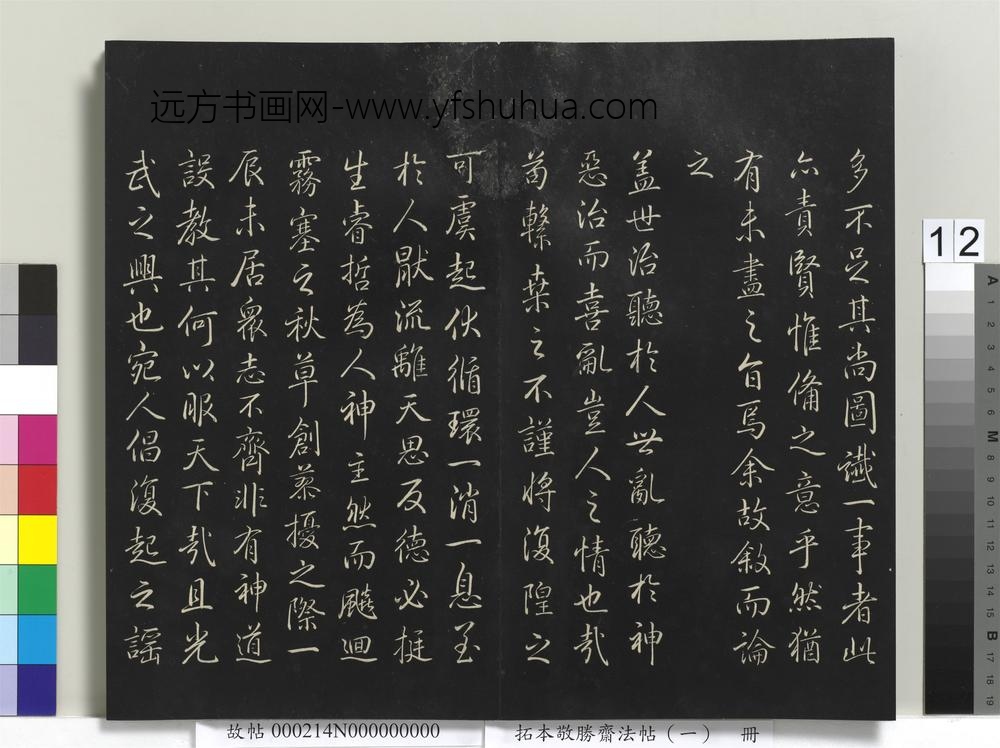 远方书画网-www.yfshuhua.com
多不足其尚圖讖一事者此
亦責賢惟備之意乎然猶
有未盡之旨焉余故敘而論
之
盖世治聽於人世亂聽於神
惡治而喜亂豈人之情也哉
苟繫桑之不謹將復隍之
可虞起伏循環一消一息至
於人猒流離天思反德必挺
生睿哲為人神主然而飈迴
霧塞之秋草創紊擾之際一
辰未居衆志不齊非有神道
設教其何以服天下哉且光
武之興也宛人倡復起之謡
12
故帖 000214N000000000
拓本敬勝齋法帖（一） 冊
A 1 2 3 4 5 6 M 8 9 10 11 12 13 14 15 B 17 18 19